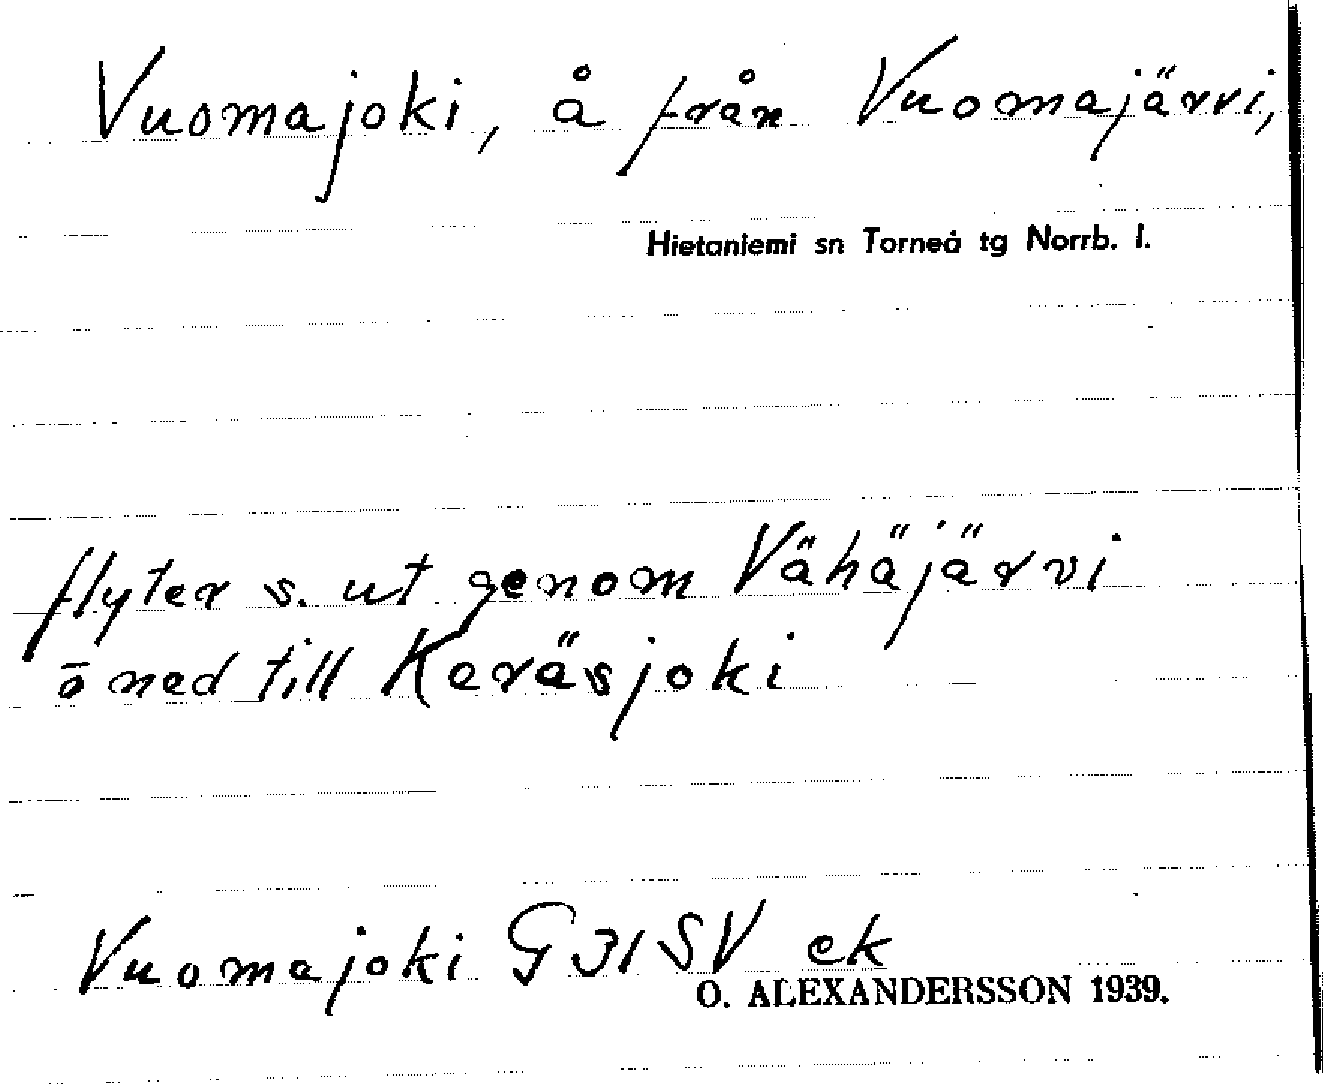 Vuomajoki, å från Vuomajärvi,
Hietaniemi sn Torneå tg Norrb. l.
flyter s. ut genom Vähäjärvi
o ned till Keräsjoki
Vuomajoki G31SV ek
O. ALEXANDERSSON 1939.